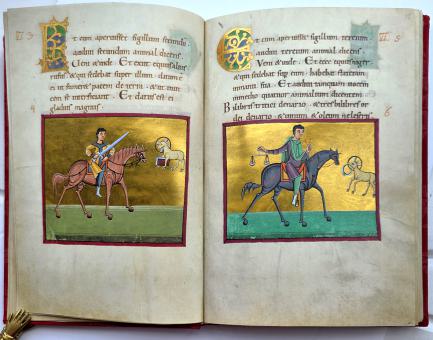 VI 3
Et cum aperuisset sigillum secundu
audiui secundum animal dicens
Ueni & uide · Et exiit equus alius
rufus · & qui sedebat super illum · datum e
4
ei ut sumeret pacem de terra · & ut inui
cem se interficiant · Et datus est ei
gladius magnus ·
VI 5
Et cum aperuisset sigillum tertium
audiui tertium animal dicens
Ueni & uide · Et ecce equus niger
& qui sedebat sup eum · habebat stateram
in manu sua · & audiui tanquam uocem
in medio quatuor animaliu dicentem
6
Bilibris tritici denario · & tres bilibres hor
dei denario · & uinum & oleum ne leseris